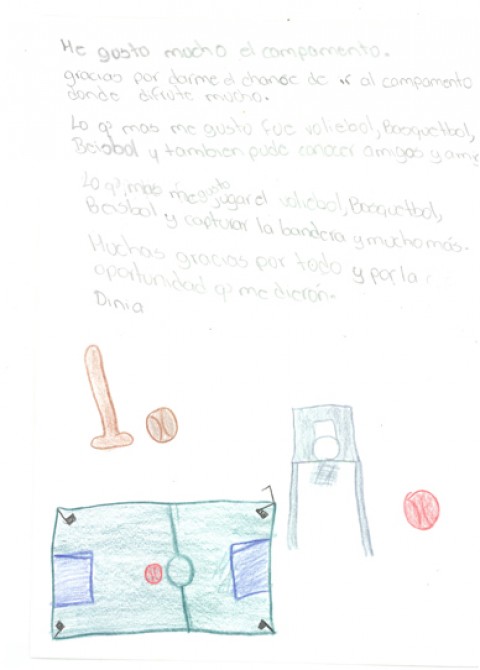 Me gusto mucho el campamento.
gracias por darme el chance de ir al campamento
donde difrute mucho.
Lo q' mas me gustó fue voliebol, Basquetbol,
Beisbol y tambien pude conocer amigos y ami
Lo q', mas me gusto jugar el voliebol, Basquetbol,
Beisbol y capturar la bandera y mucho más.
Muchas gracias por todo y por la
oportunidad q' me dieron.
Dinia